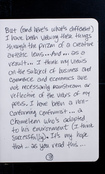 But (and here's what's different)
I have been viewing these things
through the prism of a creative
artistic lens... And... as a
result... I think my views
on the subject of business and
commerce and economics may
not necessarily mainstream or
reflective of the views of my
peers. I have been a non-
conforming conformist - a
Chameleon who's adapted
to his environment (I think
successfully). It's my hope
that as you read this...